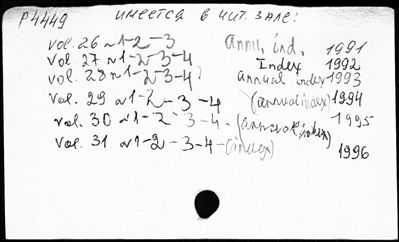 P4449 имеется в чит. зале:
Vol. 26 №1-2-3 annu. ind. 1991
Vol. 27 №1-2-3-4 Index 1992
Vol. 28 №1-2-3-4 annual index 1993
Vol. 29 №1-2-3-4 (annual index) 1994
Vol. 30 №1-2-3-4- (annual index) 1995
Vol. 31 №1-2-3-4-(index) 1996